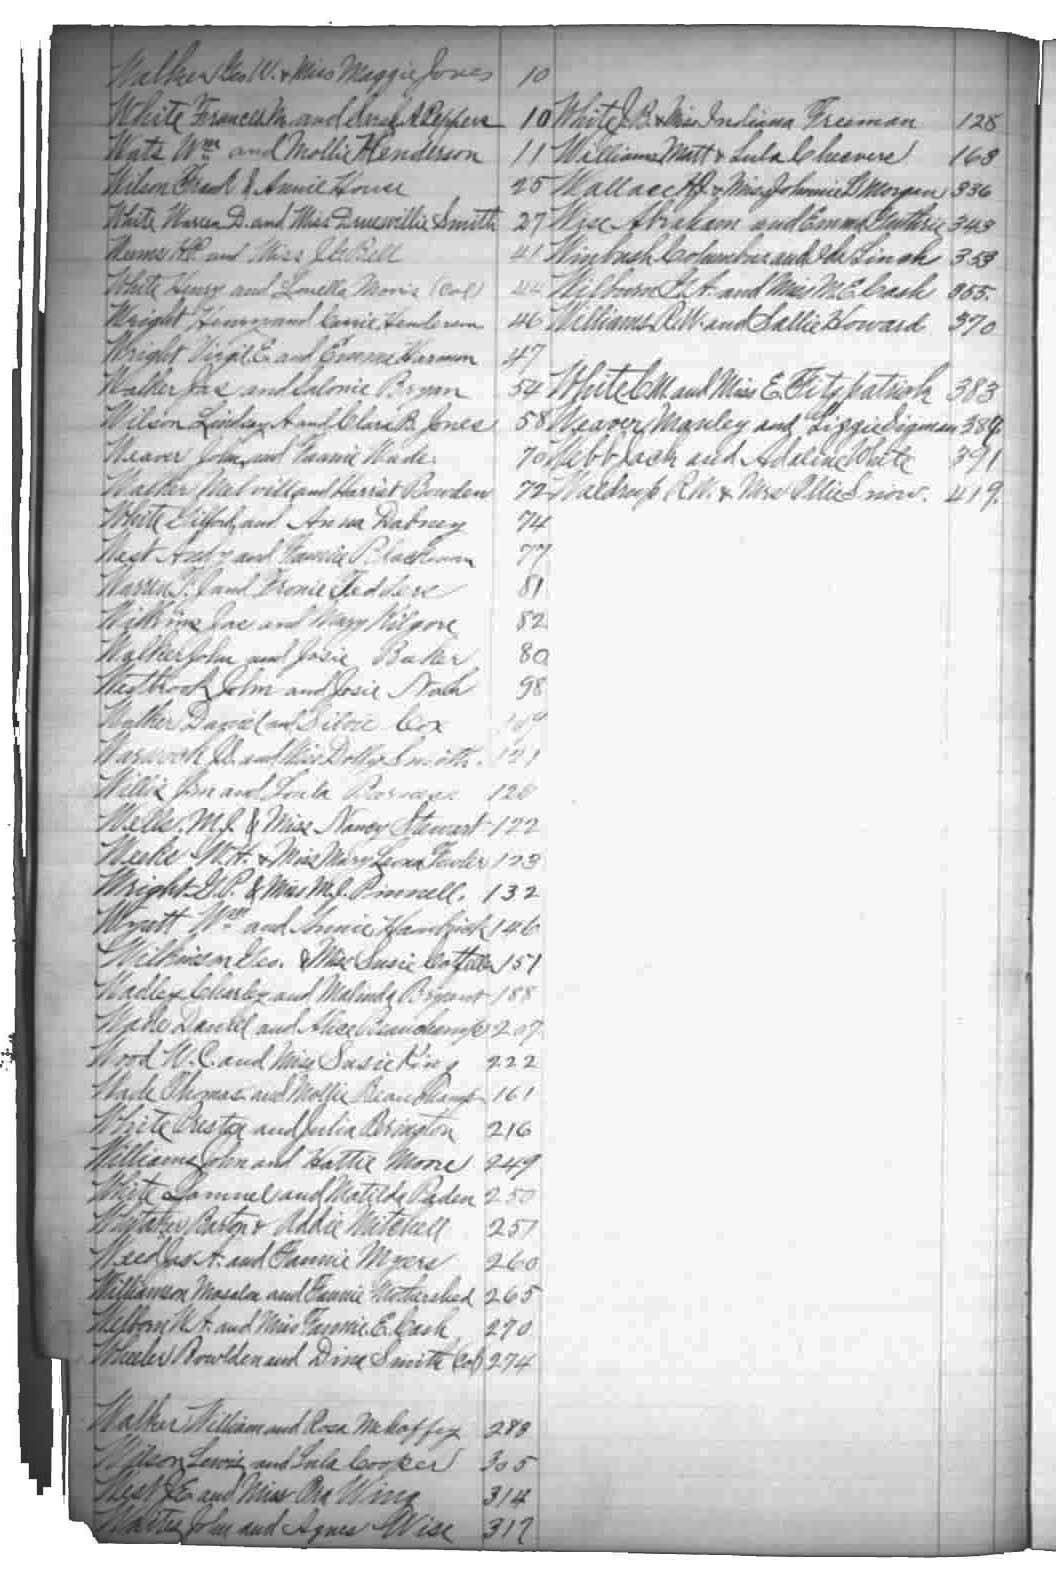 Walker Geo W. & Miss Maggie Jones 10
White Frances M. and Sarah A Peppers 10
Wats Wm and Mollie Henderson 11
Wilson Frank & Annie House 25
White Warren D. and Miss Druewillie Smith 27
and Miss Bell 41
White Henry and Louella Morris (Col) 44
Wright Henry and Carrie Henderson 46
Wright Virgil E. and Emma Harmon 47
Walker Jas and Salonie Bryan 54
Wilson Lindsay A and Clara B. Jones 58
Weaver John and Fannie Wade 70
Walker Melvill and Harriet Bowden 72
White Gilford and Anna Dabney 74
West Andy and Fannie Blackman 77
Warren T. J and Fronie 81
Wilkins Joe and Mary Kilgore 82
Walker John and Josie Baker 80
Westbrook John and Josie Nash 98
Walker David and Silvie Cox
J.D. and Miss Dolly Smith. 121
Willis Jim and Loula 120
Wells. M.J. & Miss Nancy Stewart 122
Weeks W.H. & Miss Mary Leona Fowler 123
Wright G.P. & Miss M.J. Pinnell. 132
Wyatt Wm and Annie 146
Wilkinson Geo. & Miss Susie 151
Wadley Charley and Malinda Bryant 188
Wade Daniel and Alice Beauchamp 207
Wood W.C. and Miss Susie King 222
Wade Thomas and Mollie Beauchamp 161
White Preston and Julia 216
Williams John and Hattie Moore 249
White Samuel and Matilda Paden 250
Whitaker Barton & Addie Mitchell 251
Weed Jas A. and Fannie Myers 260
Williamson and Fannie Mothershed 265
Welborn W.A. and Miss Fannie. E. Cash 270
Wheeler Bowlden and Dine Smith Col 274
Walker William and Rosa Mehaffey 288
Wilson Lewis and Lula Cooper 305
West J.E and Miss Ora Wing 314
John and Agnes Wise 317
White J.B. & Miss Indiana Freeman 128
Williams Matt & Lula Cheevere 168
Wallace H.J. & Miss Johnnie B Morgan 336
Wise Abraham and Emma Guthrie 343
Winbush Columbus and Ida Linch 353
Wilburn and Miss M.E. Cash 355.
Williams R.W. and Sallie Howard 370
White C.M and Miss E. Fitzpatrick 383
Weaver Manley and Lizzie Sigman 389.
Webb Jack and Adaline White 391
Waldrup R.W. & Mrs Ollie Snow. 419.